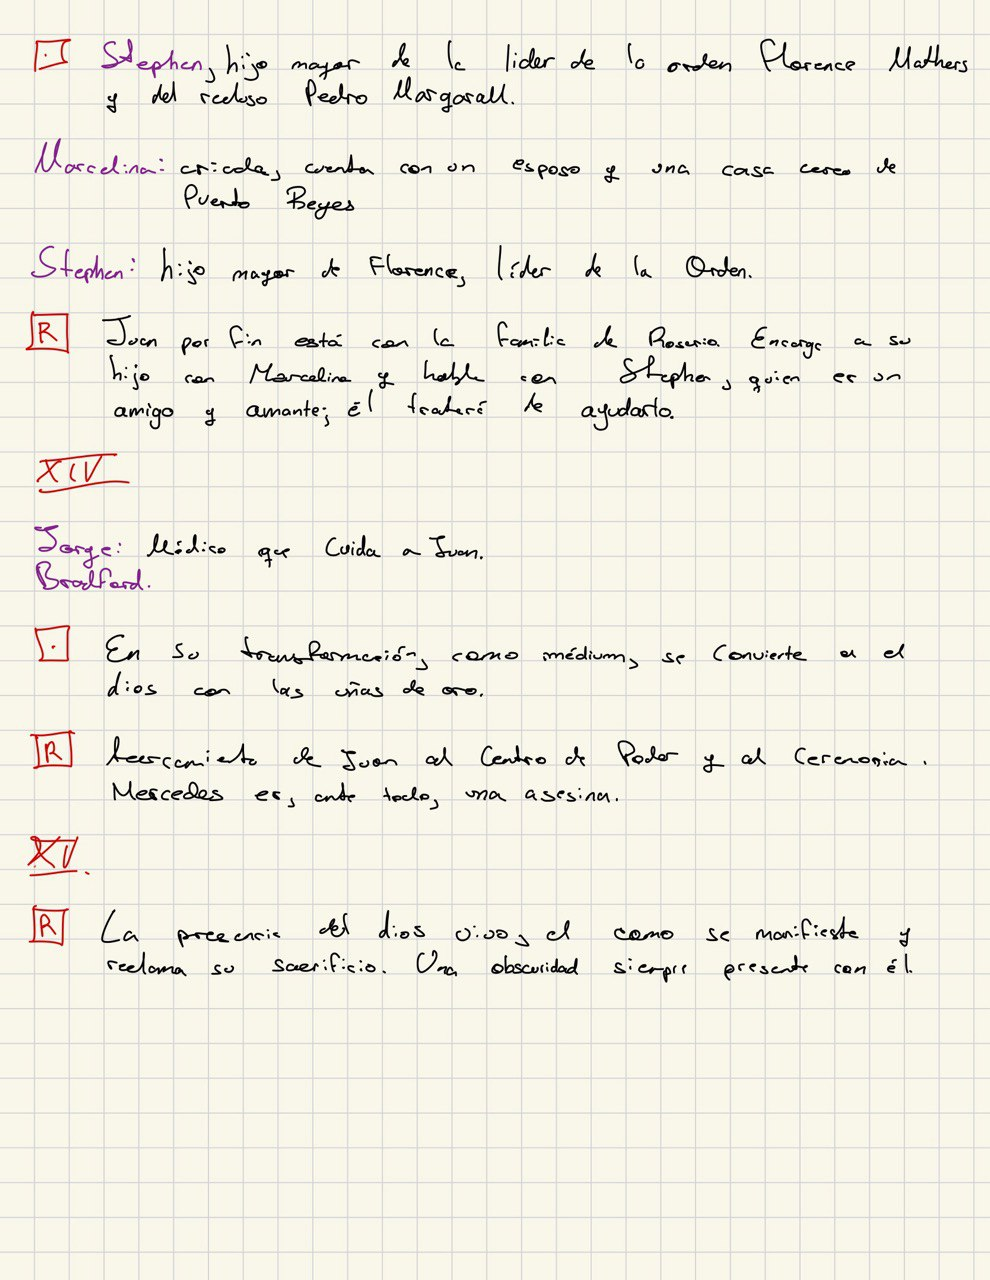 Stephen, hijo mayor de la lider de la orden Florence Mathers
y del recluso Pedro Margarall.
Marcelina: criada, cuenta con un esposo y una casa cerca de
Puerto Reyes
Stephen: hijo mayor de Florence, líder de la Orden.
R Juan por fin está con la familia de Rosario. Encarga a su
hijo con Marcelina y habla con Stephen, quien es un
amigo y amante; él tratará de ayudarlo.
XIV
Jorge: Médico que Cuida a Juan.
Bradford.
En su transformación, como médium, se Convierte a el
dios con las uñas de oro.
R Acercamiento de Juan al Centro de Poder y al Ceremonia.
Mercedes es, ante todo, una asesina.
XV.
R La presencia del dios vivo, el como se manifiesta y
reclama su sacrificio. Una obscuridad siempre presente con él.